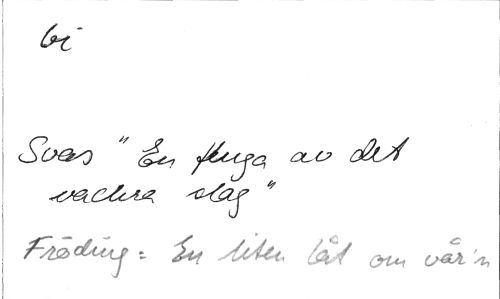 bi
Svas "En fluga av det
vackra slag"
Fröding: En liten låt om vår'n